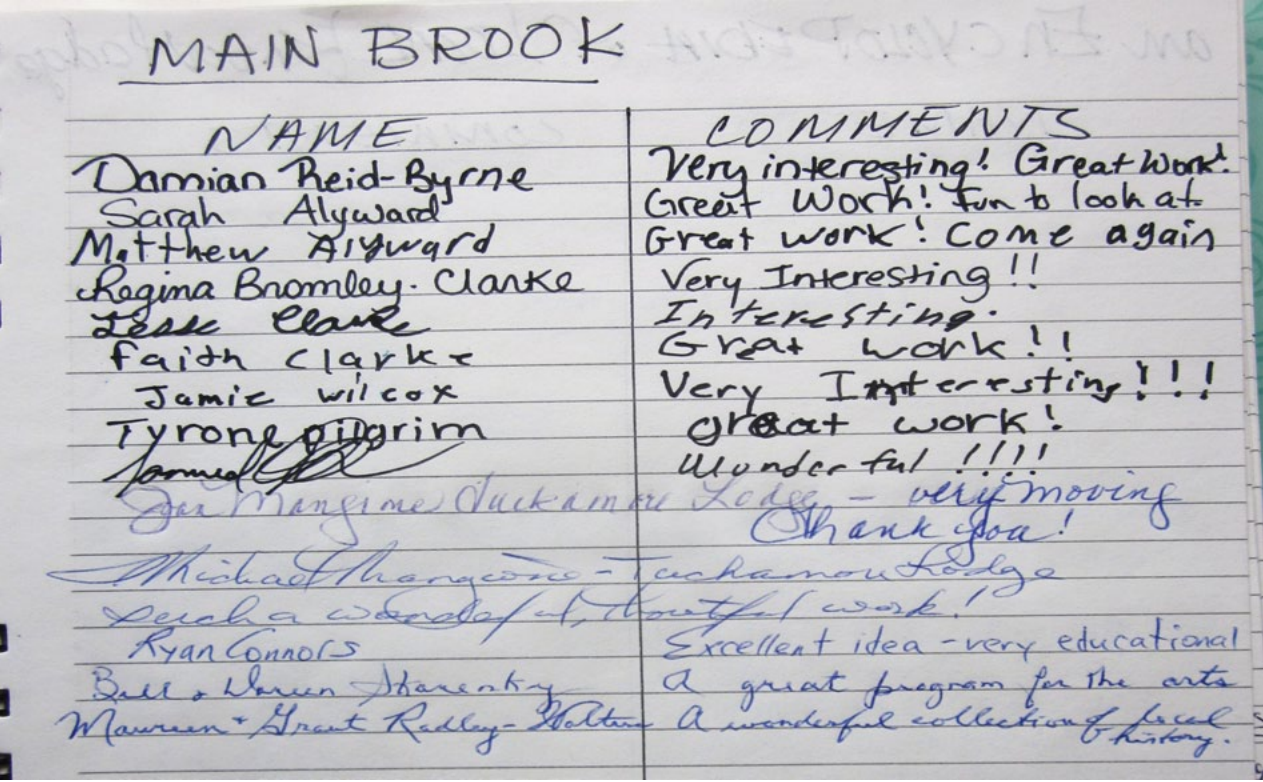 MAIN BROOK
NAME COMMENTS
Damian Reid-Byrne Very interesting! Great Work!
Sarah Alyward Great Work! Fun to look at
Matthew Alyward Great work! Come again
Regina Bromley-Clarke Very Interesting!!
Jesse Clarke Interesting.
Faith Clarke Great work!!
Jamie Wilcox Very Interesting!!!
Tyrone pilgrim great work!
Wonderful !!!!
Tuckamore Lodge - very moving
Thank you!
Michael - Tuckamore Lodge
Such a wonderful, work!
Ryan Connors Excellent idea - very educational
Bill & A great program for the arts
Maureen + Grant Radley-Walters A wonderful collection of local
history.